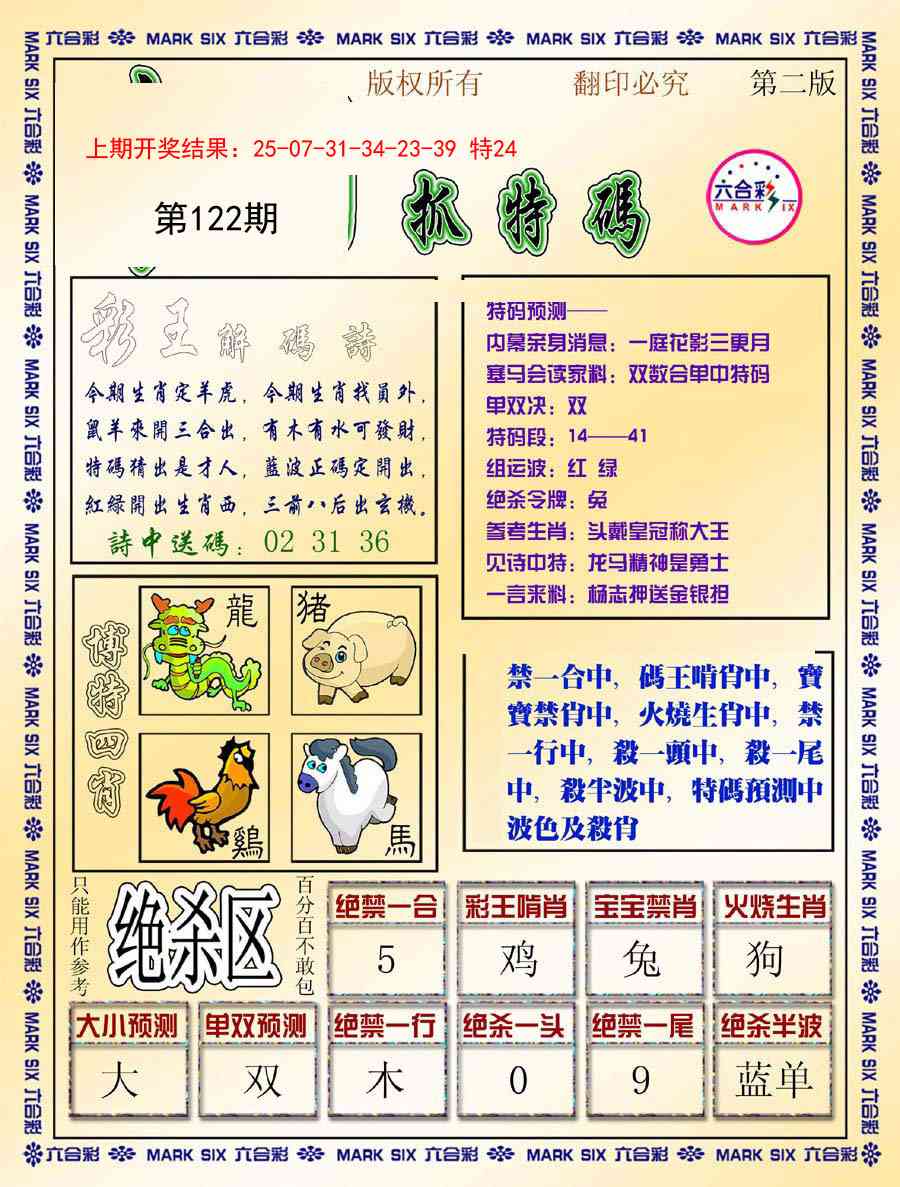 六合彩 MARK SIX 六合彩 MARK SIX 六合彩 MARK SIX 六合彩 MARK SIX 六合彩
版权所有 翻印必究 第二版
上期开奖结果：25-07-31-34-23-39 特24
第122期
抓特碼
六合彩
MARK SIX
彩王解碼詩
今期生肖定羊虎，今期生肖找員外，
鼠羊來開三合出，有木有水可發財，
特碼猜出是才人，藍波正碼定開出，
紅綠開出生肖西，三前八后出玄機。
詩中送碼：02 31 36
特码预测——
内幕亲身消息：一庭花影三更月
塞马会读家料：双数合单中特码
单双决：双
特码段：14——41
组运波：红 绿
绝杀令牌：兔
参考生肖：头戴皇冠称大王
见诗中特：龙马精神是勇士
一言来料：杨志押送金银担
博特四肖
龍
猪
鷄
馬
禁一合中，碼王啃肖中，寶
寶禁肖中，火燒生肖中，禁
一行中，殺一頭中，殺一尾
中，殺半波中，特碼預測中
波色及殺肖
只能用作参考
绝杀区
百分百不敢包
绝禁一合 彩王啃肖 宝宝禁肖 火烧生肖
5 鸡 兔 狗
大小预测 单双预测 绝禁一行 绝杀一头 绝禁一尾 绝杀半波
大 双 木 0 9 蓝单
六合彩 MARK SIX 六合彩 MARK SIX 六合彩 MARK SIX 六合彩 MARK SIX 六合彩
MARK SIX 六合彩 MARK SIX 六合彩 MARK SIX 六合彩 MARK SIX 六合彩 MARK SIX 六合彩 MARK SIX 六合彩 MARK SIX 六合彩
MARK SIX 六合彩 MARK SIX 六合彩 MARK SIX 六合彩 MARK SIX 六合彩 MARK SIX 六合彩 MARK SIX 六合彩 MARK SIX 六合彩